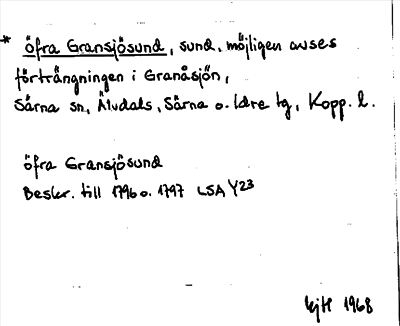 * öfra Gransjösund, sund, möjligen avses
förträngningen i Granåsjön,
Särna sn, Älvdals, Särna o. Idre tg, Kopp. l.
öfra Gransjösund
Beskr. till 1796 o. 1797 LSA Y23
1968